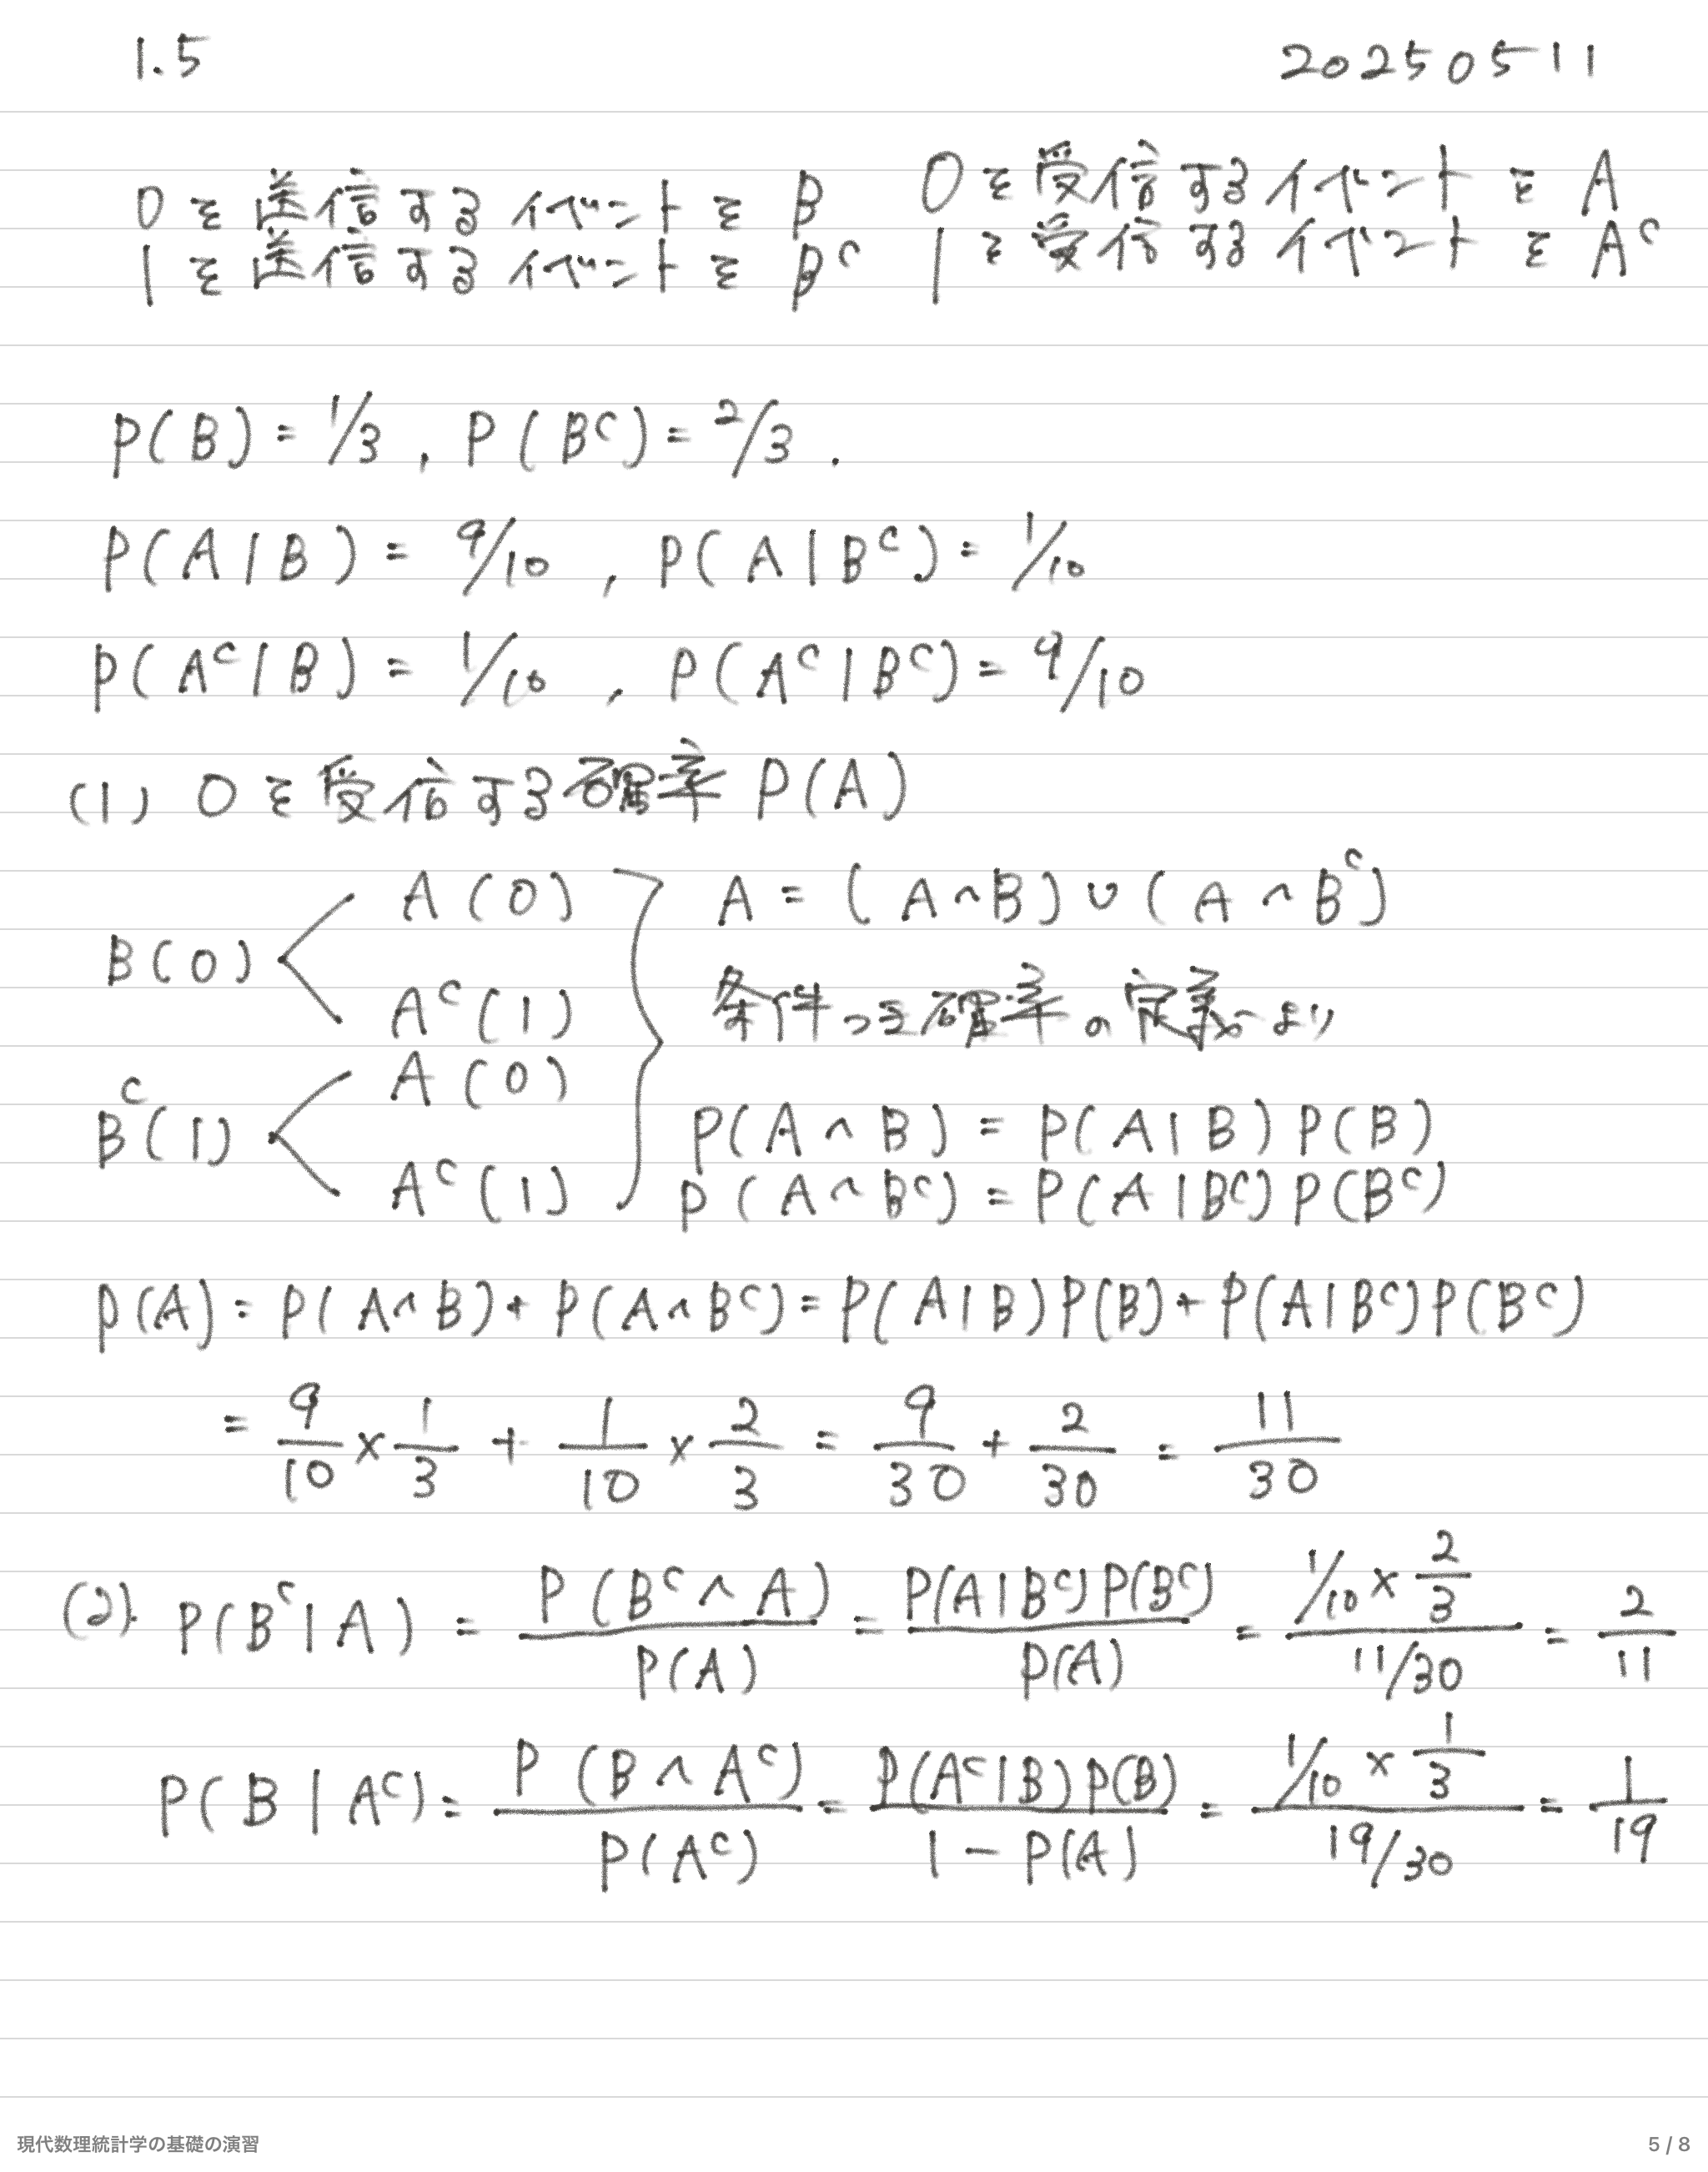 1.5 20250511
0を送信するイベントをB 0を受信するイベントをA
1を送信するイベントをB^c 1を受信するイベントをA^c
P(B) = 1/3 , P(B^c) = 2/3 .
P(A|B) = 9/10 , P(A|B^c) = 1/10
P(A^c|B) = 1/10 , P(A^c|B^c) = 9/10
(1) 0を受信する確率 P(A)
B(0)
A(0)
A^c(1)
B^c(1)
A(0)
A^c(1)
A = (A∩B)∪(A∩B^c)
条件つき確率の定義より
P(A∩B) = P(A|B)P(B)
P(A∩B^c) = P(A|B^c)P(B^c)
P(A) = P(A∩B) + P(A∩B^c) = P(A|B)P(B) + P(A|B^c)P(B^c)
= 9/10 × 1/3 + 1/10 × 2/3 = 9/30 + 2/30 = 11/30
(2). P(B^c|A) = P(B^c∩A)/P(A) = P(A|B^c)P(B^c)/P(A) = (1/10 × 2/3)/(11/30) = 2/11
P(B|A^c) = P(B∩A^c)/P(A^c) = P(A^c|B)P(B)/(1-P(A)) = (1/10 × 1/3)/(19/30) = 1/19
現代数理統計学の基礎の演習 5 / 8